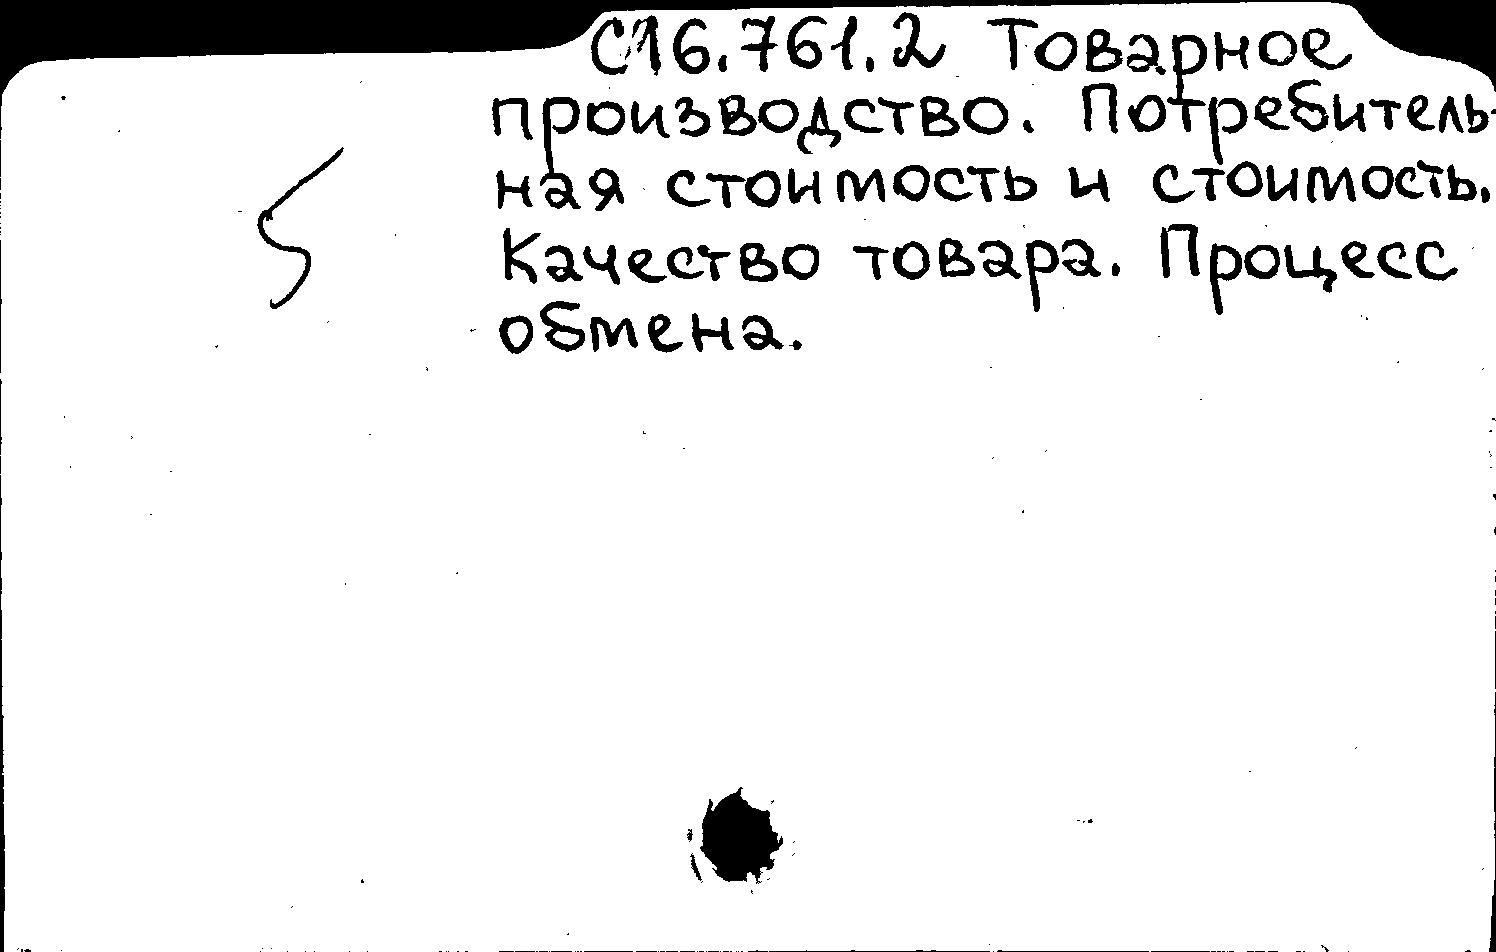 С16.761.2 Товарное
производство. Потребитель-
ная стоимость и стоимость.
Качество товара. Процесс
обмена.